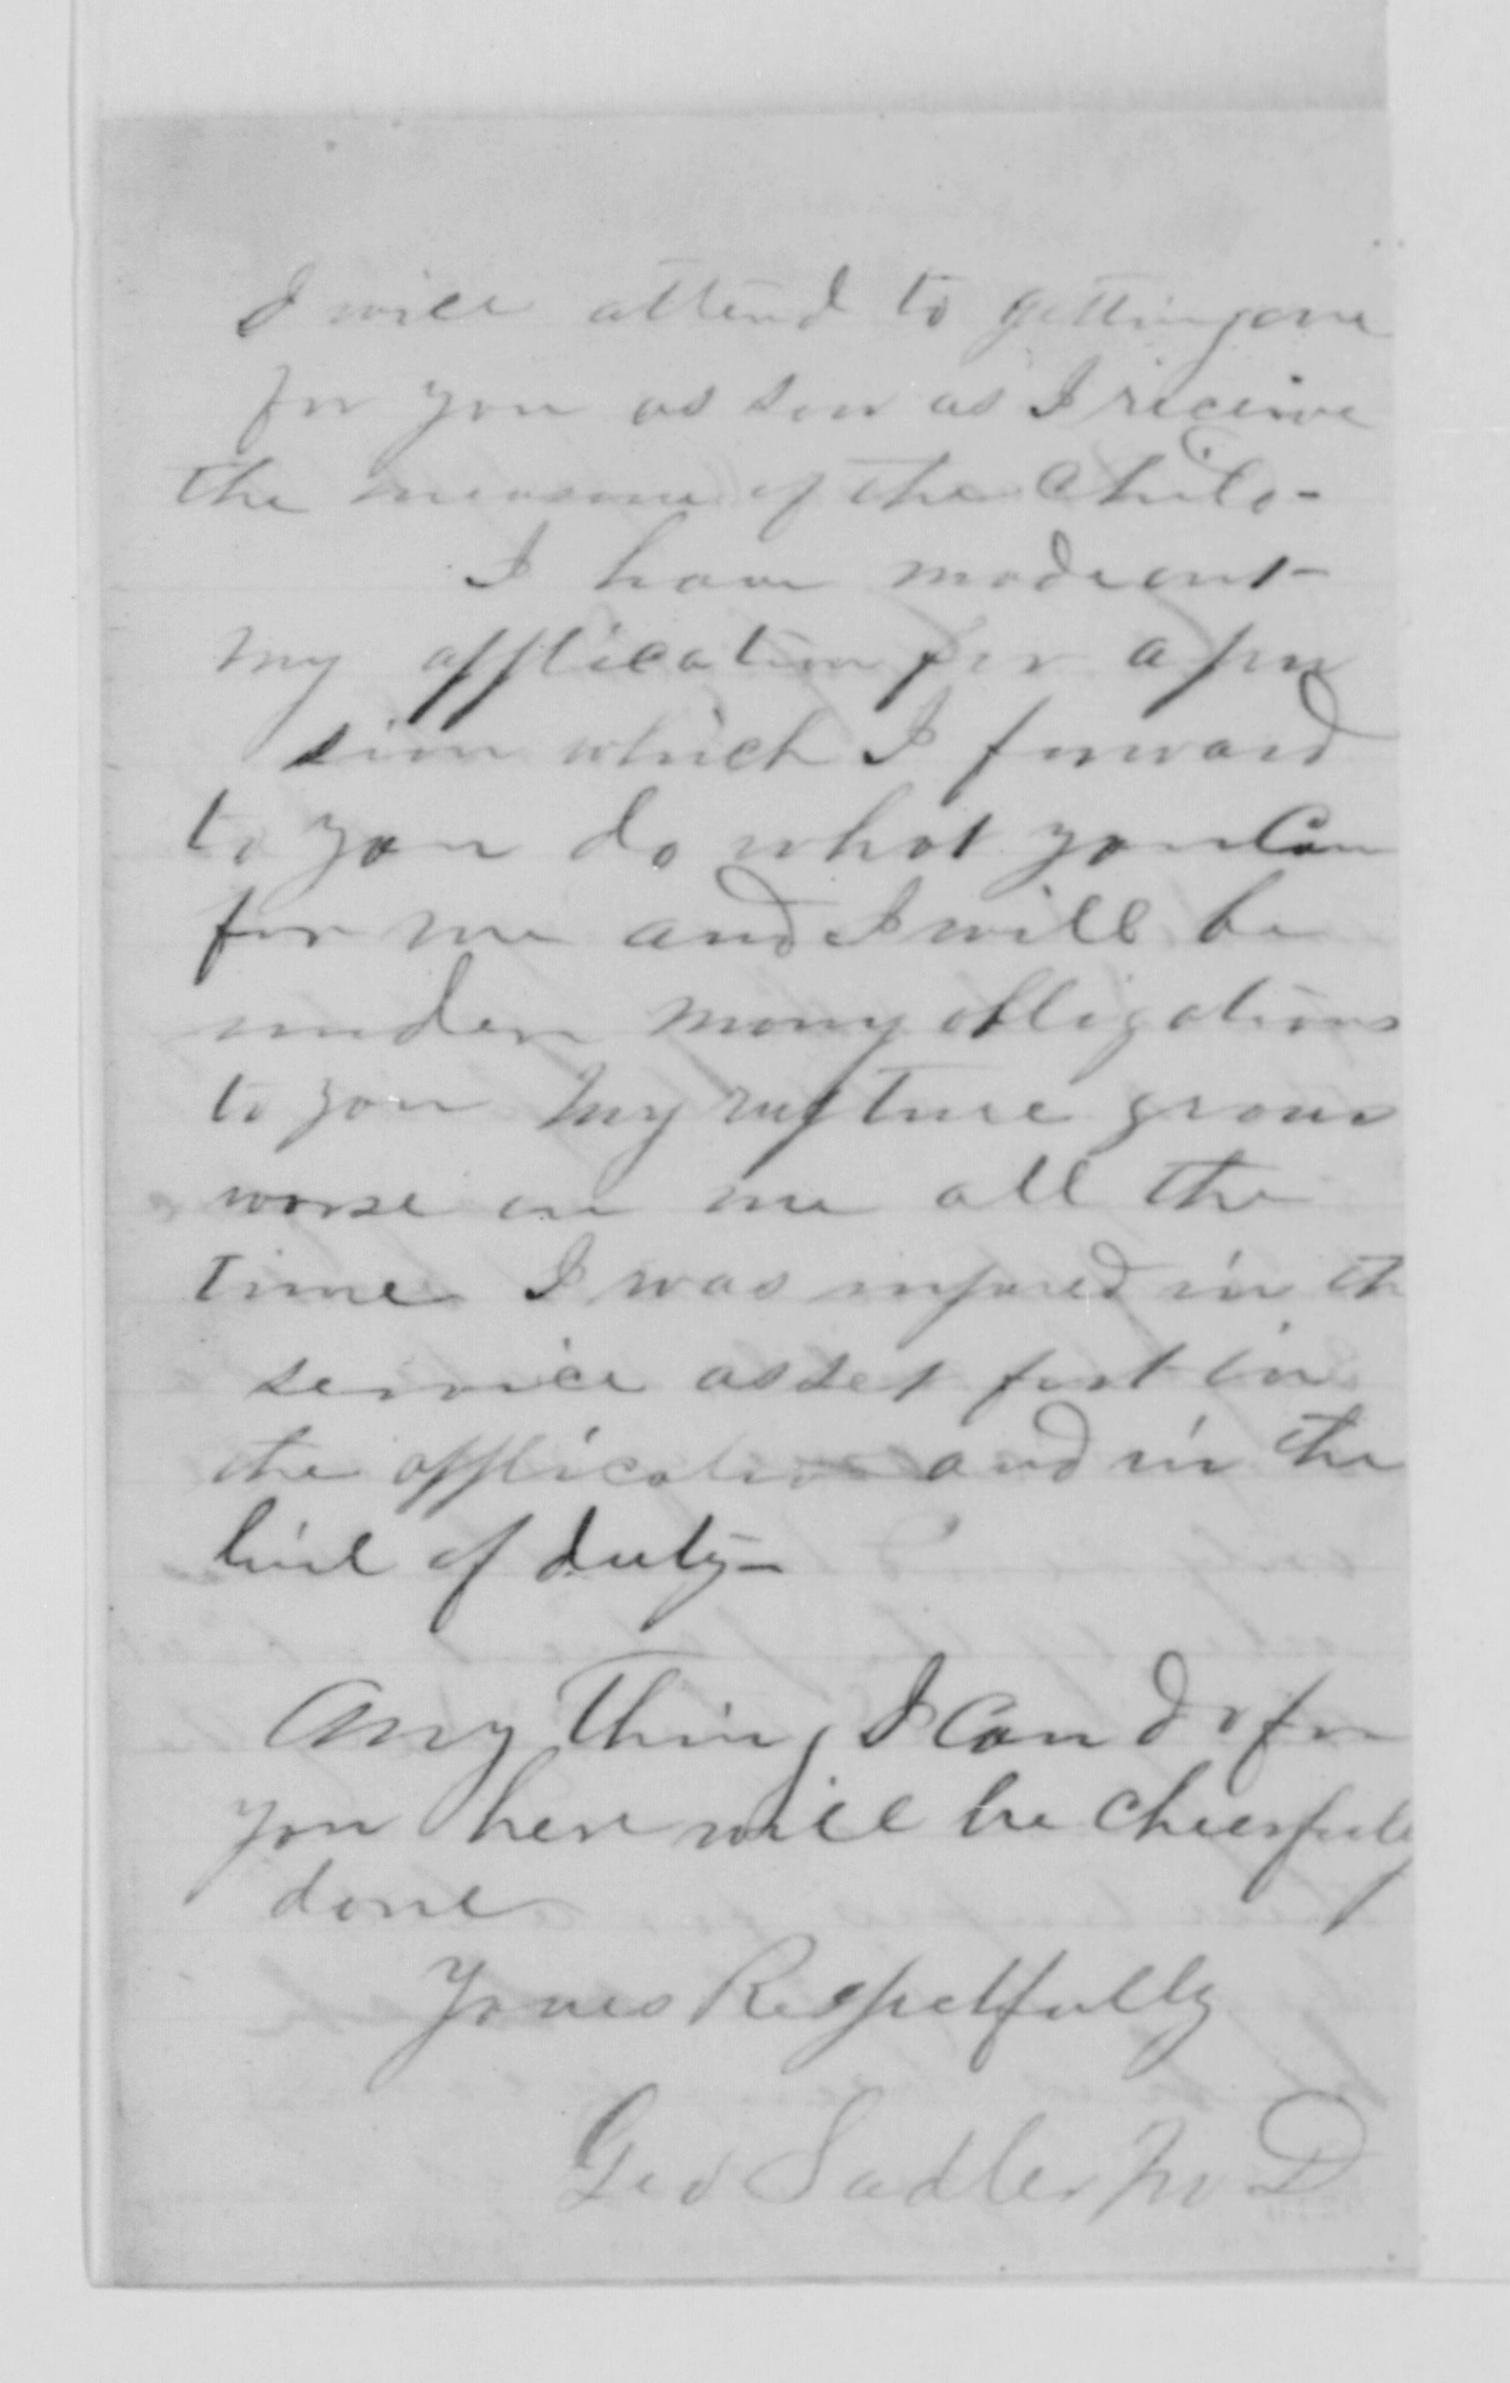 I will attend to getting one
for you as soon as I receive
the measure of the Child -
I have made out -
my application for a pen
sion which I forward
to you do what you Can
for me and I will be
under many obligations
to you My rupture grows
worse on me all the
time I was injured in th
service as set fort in
the application and in the
line of duty -
Any Thing I Can do for
you here will be Cheerfully
done
Yours Respetfully
Geo Sadler M D